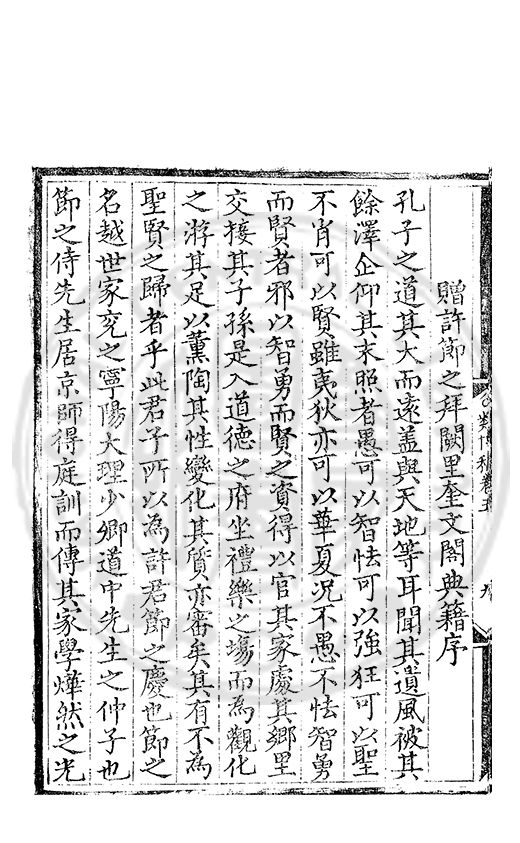 贈許節之拜闕里奎文閣典籍序
孔子之道其大而遠盖與天地等耳聞其遺風被其
餘澤企仰其末照者愚可以智怯可以強狂可以聖
不肖可以賢雖夷狄亦可以華夏况不愚不怯智勇
而賢者邪以智勇而賢之資得以官其家處其鄉里
交接其子孫是入道德之府坐禮樂之塲而為觀化
之游其足以薰陶其性變化其質亦審矣其有不為
聖賢之歸者乎此君子所以為許君節之慶也節之
名越世家兖之寧陽大理少卿道中先生之仲子也
節之侍先生居京師得庭訓而傳其家學燁然之光